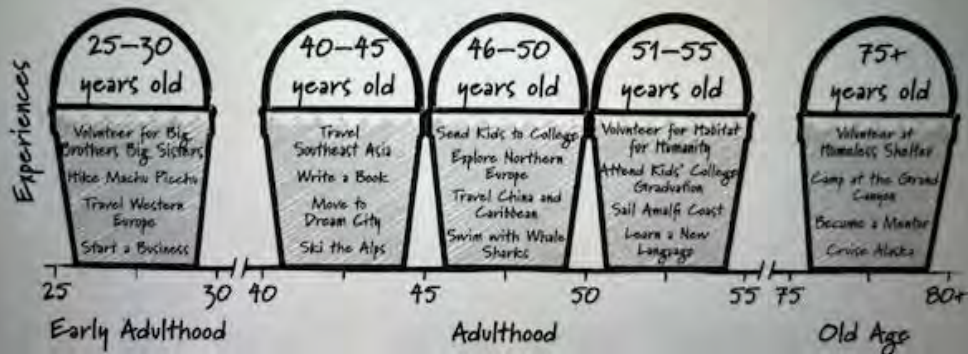 Experiences
25–30
years old
Volunteer for Big
Brothers Big Sisters
Hike Machu Picchu
Travel Western
Europe
Start a Business
40–45
years old
Travel
Southeast Asia
Write a Book
Move to
Dream City
Ski the Alps
46–50
years old
Send Kids to College
Explore Northern
Europe
Travel China and
Caribbean
Swim with Whale
Sharks
51–55
years old
Volunteer for Habitat
for Humanity
Attend Kids' College
Graduation
Sail Amalfi Coast
Learn a New
Language
75+
years old
Volunteer at
Homeless Shelter
Camp at the Grand
Canyon
Become a Mentor
Cruise Alaska
25 30 40 45 50 55 75 80+
Early Adulthood Adulthood Old Age